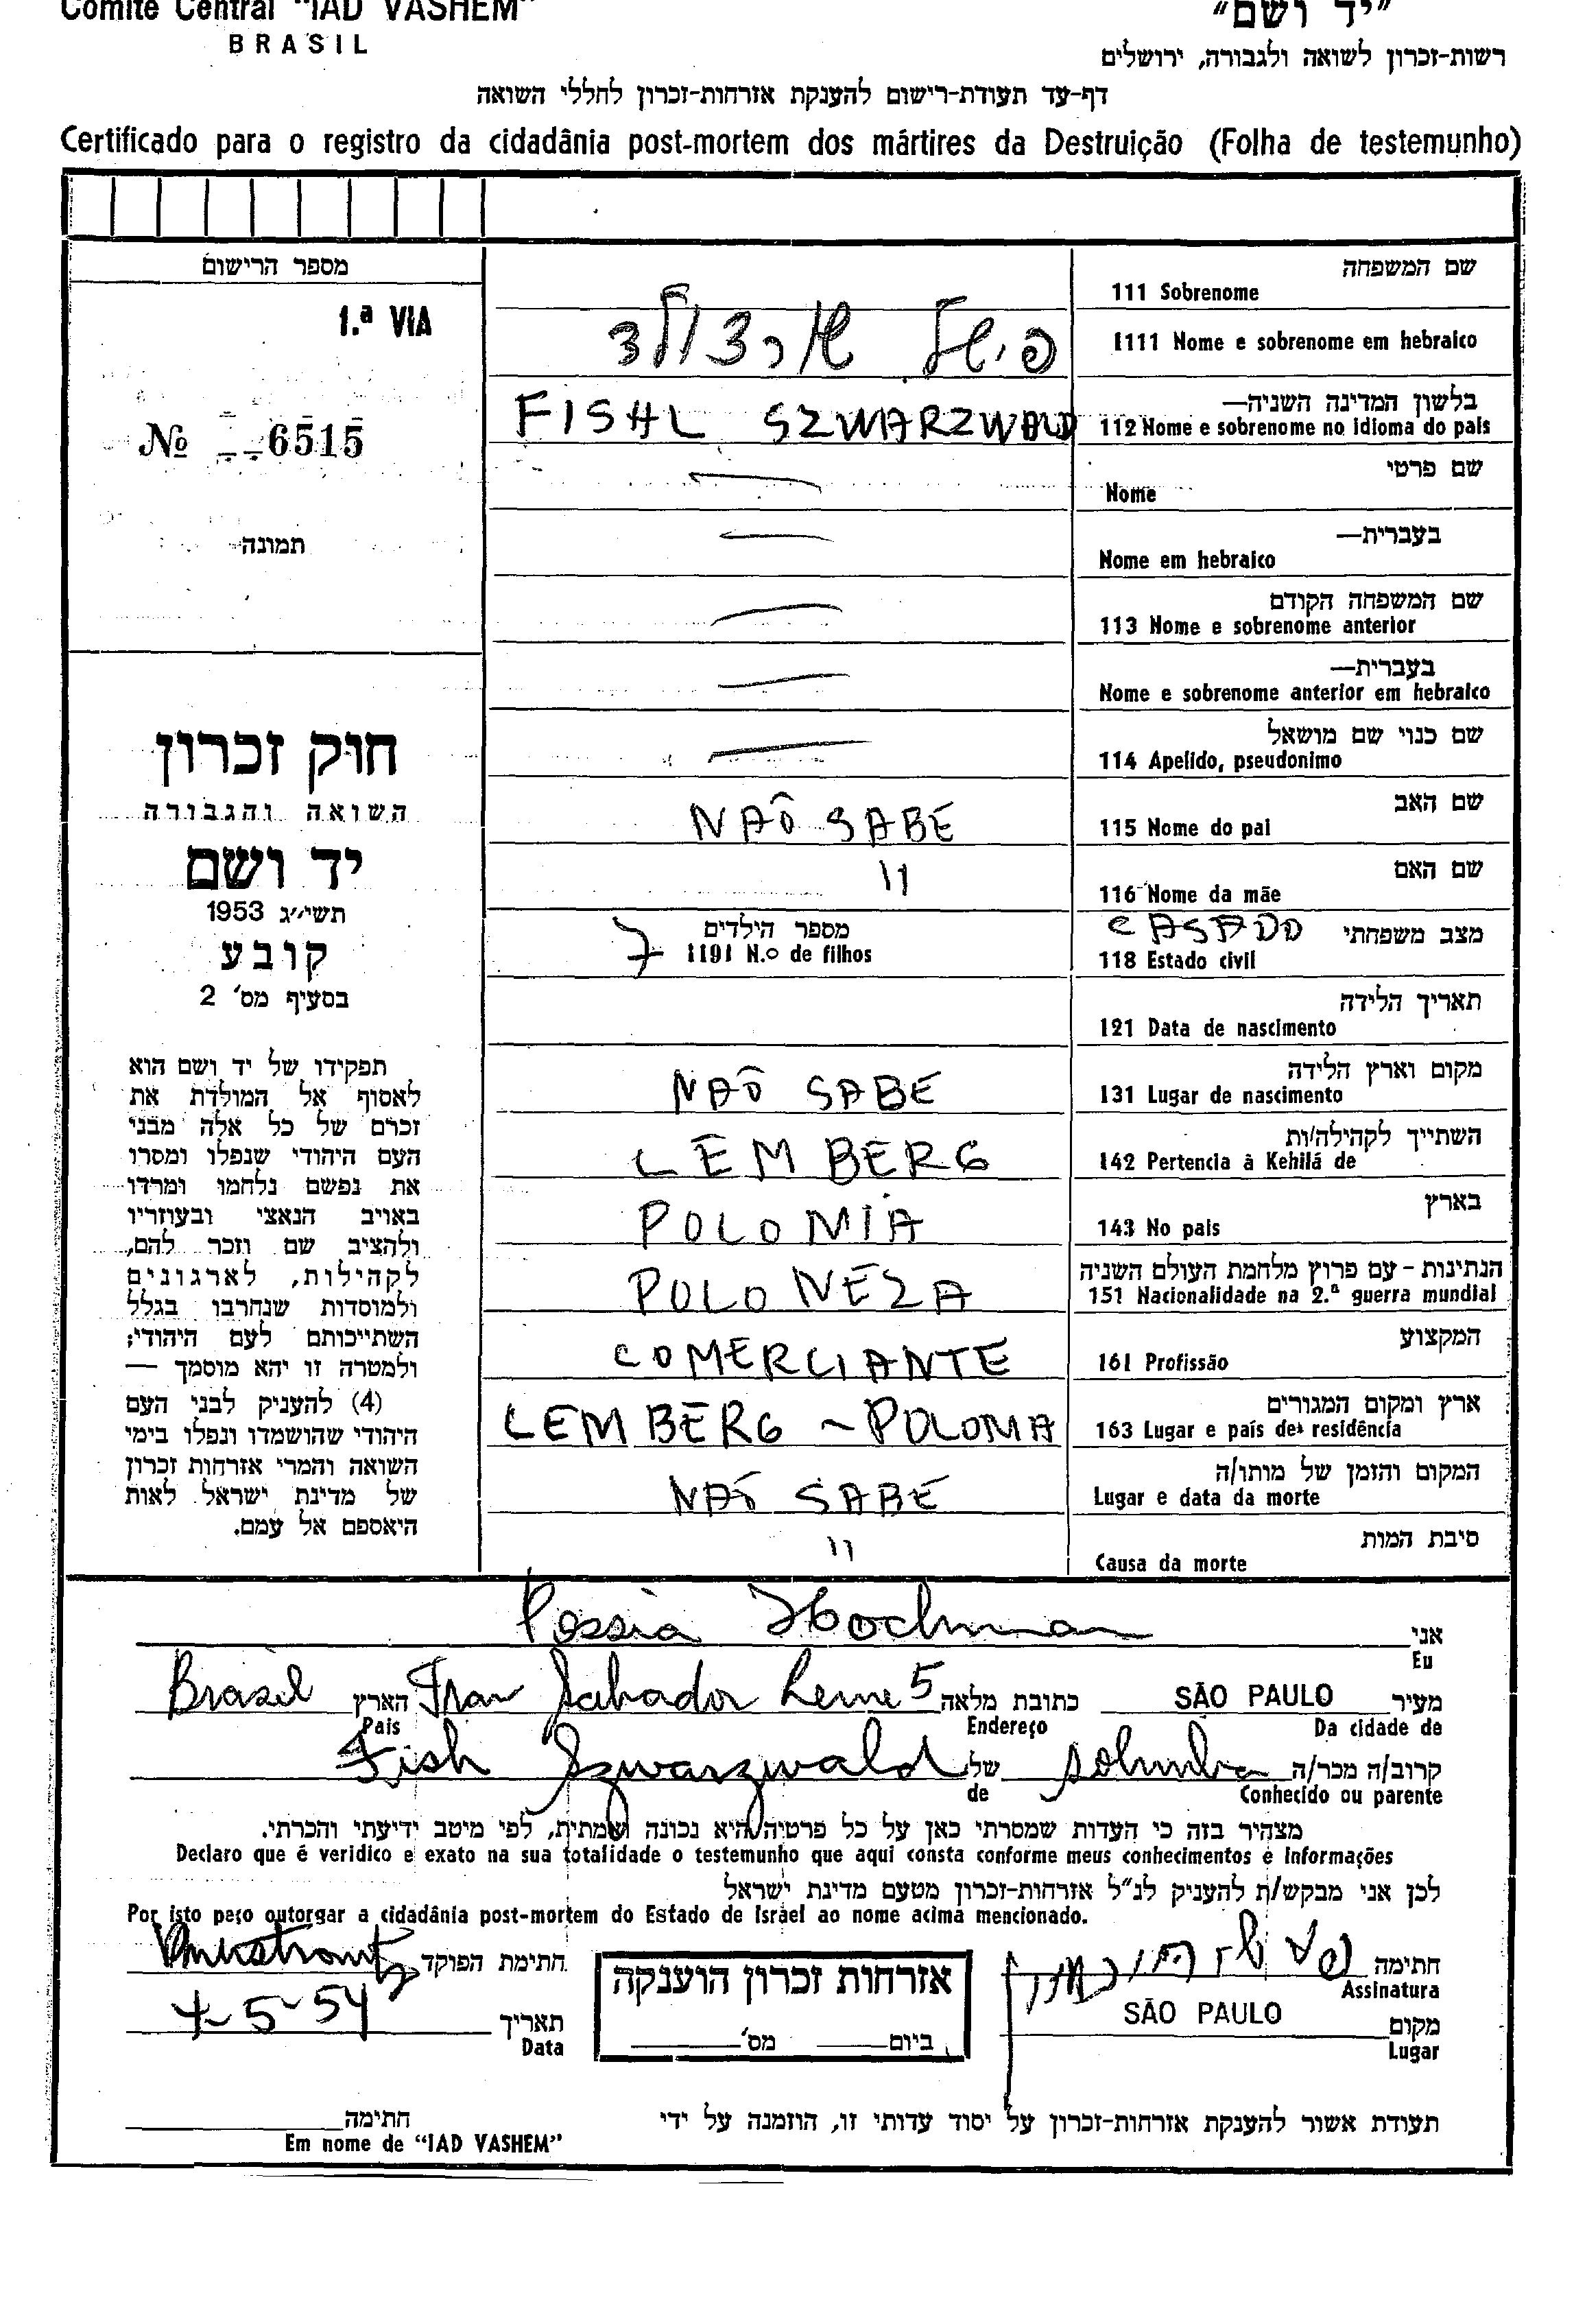 Comité Central "IAD VASHEM"
BRASIL
"יד ושם"
רשות-זכרון לשואה ולגבורה, ירושלים
דף-עד תעודת-רישום להענקת אזרחות-זכרון לחללי השואה
Certificado para o registro da cidadânia post-mortem dos mártires da Destruição (Folha de testemunho)
מספר הרישום
1.ª VIA
№ 6515
תמונה
חוק זכרון
השואה והגבורה
יד ושם
תשי״ג 1953
קובע
בסעיף מס' 2
תפקידו של יד ושם הוא
לאסוף אל המולדת את
זכרם של כל אלה מבני
העם היהודי שנפלו ומסרו
את נפשם נלחמו ומרדו
באויב הנאצי ובעוזריו
ולהציב שם וזכר להם,
לקהילות, לארגונים
ולמוסדות שנחרבו בגלל
השתייכותם לעם היהודי;
ולמטרה זו יהא מוסמך —
(4) להעניק לבני העם
היהודי שהושמדו ונפלו בימי
השואה והמרי אזרחות זכרון
של מדינת ישראל לאות
היאספם אל עמם.
שם המשפחה
111 Sobrenome
1111 Nome e sobrenome em hebraico
פישל
בלשון המדינה השניה—
FISHL SZWARZWALD 112 Nome e sobrenome no idioma do pais
שם פרטי
Nome
בעברית—
Nome em hebraico
שם המשפחה הקודם
113 Nome e sobrenome anterior
בעברית—
Nome e sobrenome anterior em hebraico
שם כנוי שם מושאל
114 Apelido, pseudonimo
שם האב
NAÕ SABE 115 Nome do pai
שם האם
" 116 Nome da mãe
מצב משפחתי CASADO
118 Estado civil
מספר הילדים
7 1191 N.o de filhos
תאריך הלידה
121 Data de nascimento
מקום וארץ הלידה
NAÕ SABE 131 Lugar de nascimento
השתייך לקהילה/ות
LEMBERG 142 Pertencia à Kehilá de
בארץ
POLOMIA 143 No pais
הנתינות - עם פרוץ מלחמת העולם השניה
POLONEZA 151 Nacionalidade na 2.ª guerra mundial
המקצוע
COMERCIANTE 161 Profissão
ארץ ומקום המגורים
LEMBERG - POLOMA 163 Lugar e país de residência
המקום והזמן של מותו/ה
NAÕ SABE Lugar e data da morte
סיבת המות
" Causa da morte
אני Possia Hochman
Eu
מעיר SÃO PAULO כתובת מלאה Leme 5 הארץ Brasil
Da cidade de Endereço Pais
קרוב/ה מכר/ה של Fish Szwarzwald
Conhecido ou parente de
מצהיר בזה כי העדות שמסרתי כאן על כל פרטיה היא נכונה ואמתית, לפי מיטב ידיעתי והכרתי.
Declaro que é veridico e exato na sua totalidade o testemunho que aqui consta conforme meus conhecimentos e informações
לכן אני מבקש/ת להעניק לנ"ל אזרחות-זכרון מטעם מדינת ישראל
Por isto peço outorgar a cidadânia post-mortem do Estado de Israel ao nome acima mencionado.
חתימה
Assinatura
חתימת הפוקד
אזרחות זכרון הוענקה
ביום מס'
SÃO PAULO מקום
Lugar
תאריך 4-5-54
Data
תעודת אשור להענקת אזרחות-זכרון על יסוד עדותי זו, הוזמנה על ידי
חתימה
Em nome de "IAD VASHEM"